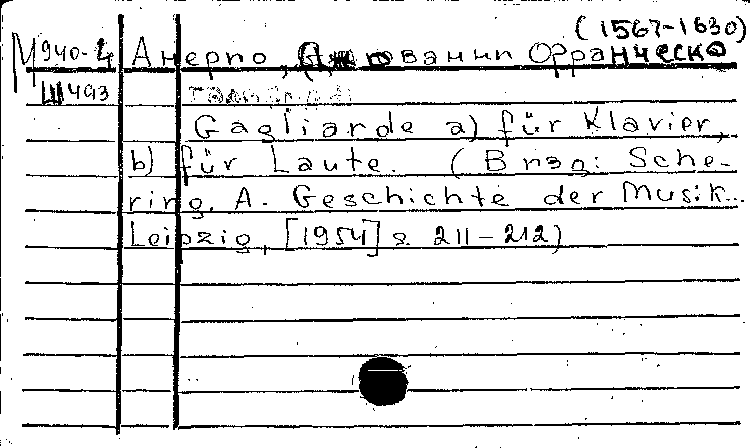 (1567-1630)
М940-4 Анерио, Джованни Франческо
Ш493
Gagliarde a) für Klavier,
b) für Laute. (В изд: Sche-
ring. A. Geschichte der Musik...
Leipzig, [1954] s. 211-212)